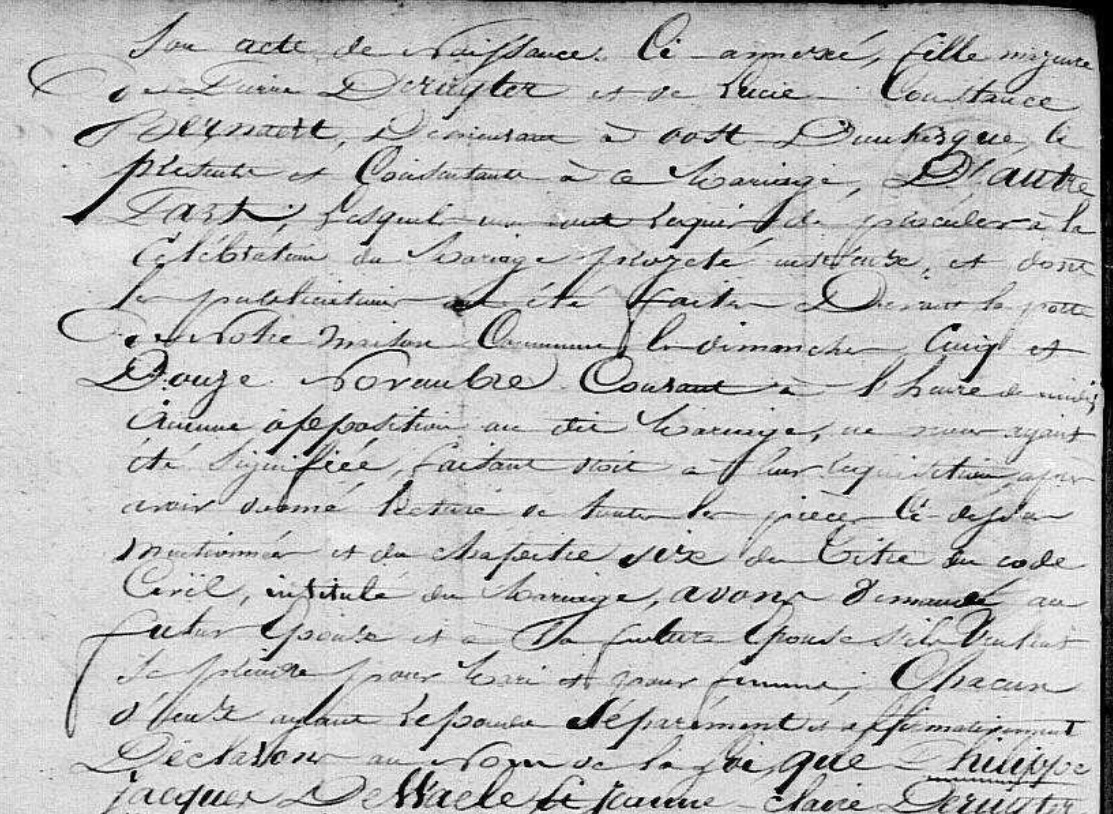 Son acte de Naissance. Ci annexé, fille majeure
De Pierre Deruyter et de Lucie Constance
Bernaert, Demeurant à oost Dunkerque, ici
présente et Consentante à ce Mariage, D'autre
Part; Lesquels nous ont requis de procéder à la
Célébration du Mariage projeté entr'eux, et dont
les publications ont été faites Devant la porte
De Notre maison Commune les dimanches Cinq et
Douze Novembre Courant à l'heure de midi
Aucune opposition au dit Mariage, ne nous ayant
été Signifiée, faisant droit à leur requisition, après
avoir donné lecture de toutes les pièces Ci-dessus
mentionnées et du chapitre six du Titre du code
Civil, intitulé du Mariage, avons Demandé au
futur Epoux et à la future Epouse s'ils Veulent
se prendre pour Mari et pour femme; Chacun
d'eux ayant Repondu Séparément et affirmativement
Déclarons au Nom de la Loi, que Philippe
jacques DeWaele et jeanne claire Deruyter